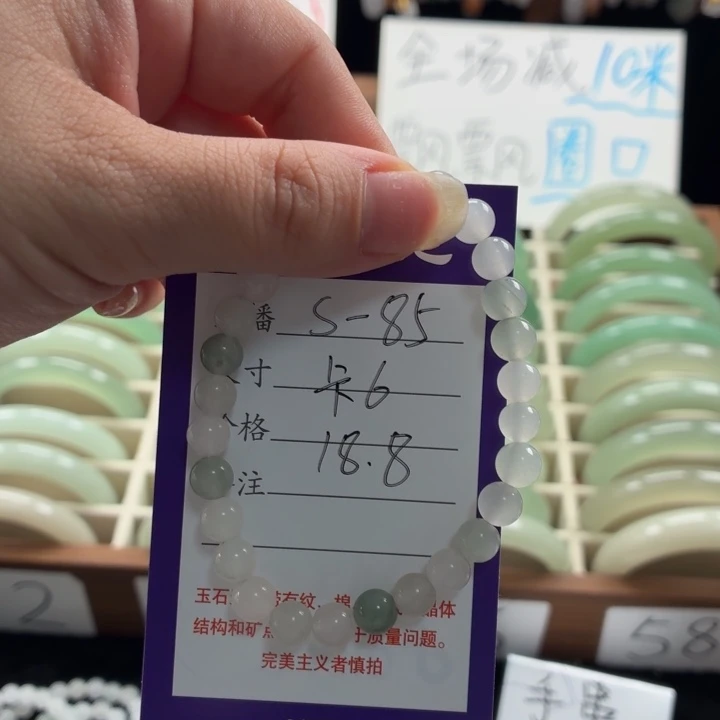 全场减10米
飘飘圈口
番 S-85
寸 卡6
格 18.8
注
玉石 有纹、棉 晶体
结构和矿 于质量问题。
完美主义者慎拍
2
58
手串